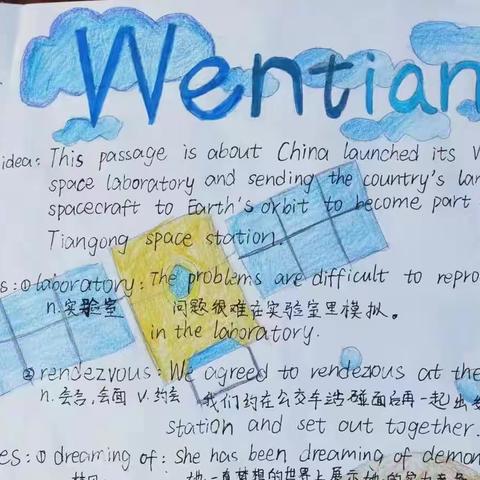 Wentian
idea: This passage is about China launched its W
space laboratory and sending the country's lar
spacecraft to Earth's orbit to become part
Tiangong space station.
s: ① laboratory: The problems are difficult to repro
n. 实验室 问题很难在实验室里模拟。
in the laboratory.
② rendezvous: We agreed to rendezous at the
n. 会合,会面 v. 约会 我们约在公交车站碰面后再一起出
station and set out together.
es: ① dreaming of: She has been dreaming of demon
梦见 她一直梦想向世界上展示她的